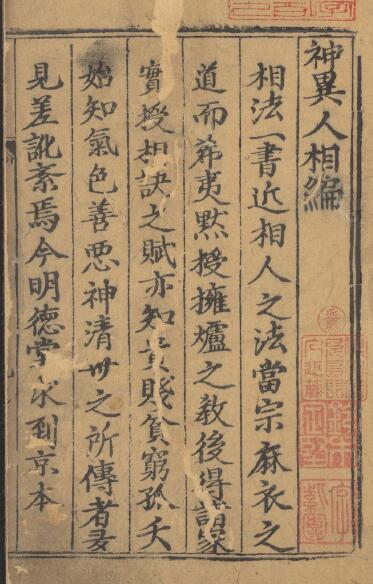 神異人相編
相法一書近相人之法當宗麻衣之
道而希夷默授擁爐之教後得
實授相訣之賦亦知貴賤貧窮孤夭
始知氣色善悪神清世之所傳者
見差訛紊焉今明德堂求到京本